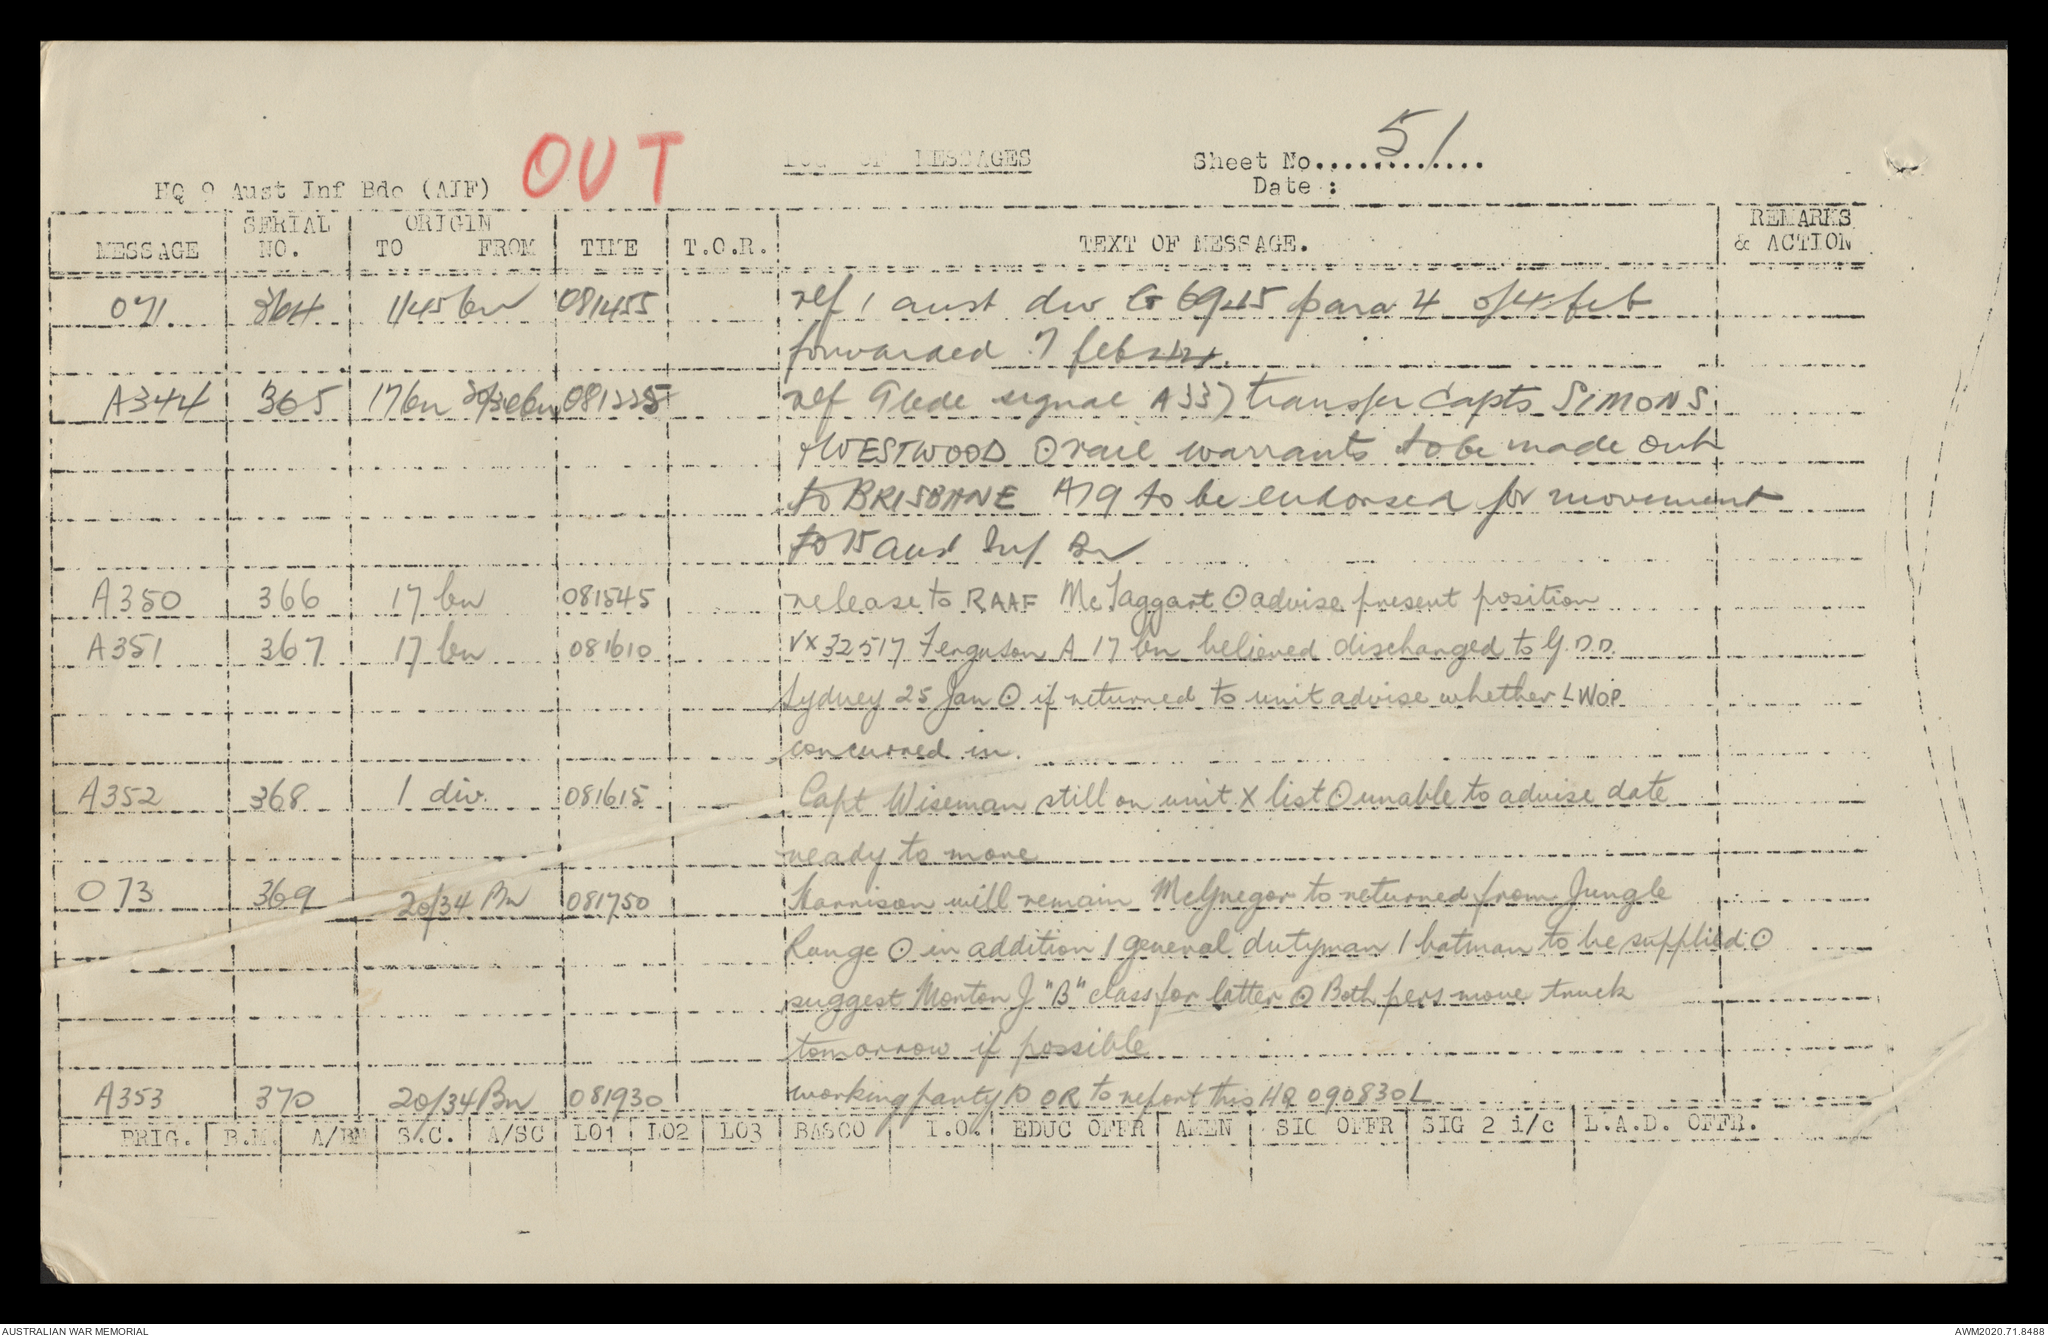 OUT
LOG OF MESSAGES
Sheet No............ 51
HQ 9 Aust Inf Bde (AIF)
Date :
MESSAGE SERIAL NO. ORIGIN TO FROM TIME T.O.R. TEXT OF MESSAGE. REMARKS & ACTION
071 364 1/45 bn 081455 ref 1 aust div G 6945 para 4 of 4 feb
forwarded 7 feb
A344 365 17 bn 081225 ref Glede signal A337 transfer Capts SIMONS
+ WESTWOOD ⊙ rail warrants to be made out
to BRISBANE A79 to be endorsed for movement
to 15 aust Inf Bn
A350 366 17 bn 081545 release to RAAF McTaggart ⊙ advise present position
A351 367 17 bn 081610 VX32517 Ferguson A 17 bn believed discharged to G.D.D.
Sydney 25 Jan ⊙ if returned to unit advise whether LWOP
concurred in.
A352 368 1 div. 081615 Capt Wiseman still on unit X list ⊙ unable to advise date
ready to move
073 369 20/34 Bn 081750 Harrison will remain McGregor to returned from Jungle
Range ⊙ in addition 1 general dutyman 1 batman to be supplied ⊙
suggest Morton J "B" class for latter ⊙ Both pers move truck
tomorrow if possible
A353 370 20/34 Bn 081930 working party 10 OR to report this HQ 090830L
BRIG. B.M. A/BM S.C. A/SC LO1 LO2 LO3 BASCO I.O. EDUC OFFR AMEN SIG OFFR SIG 2 i/c L.A.D. OFFR.
AUSTRALIAN WAR MEMORIAL
AWM2020.71.8488